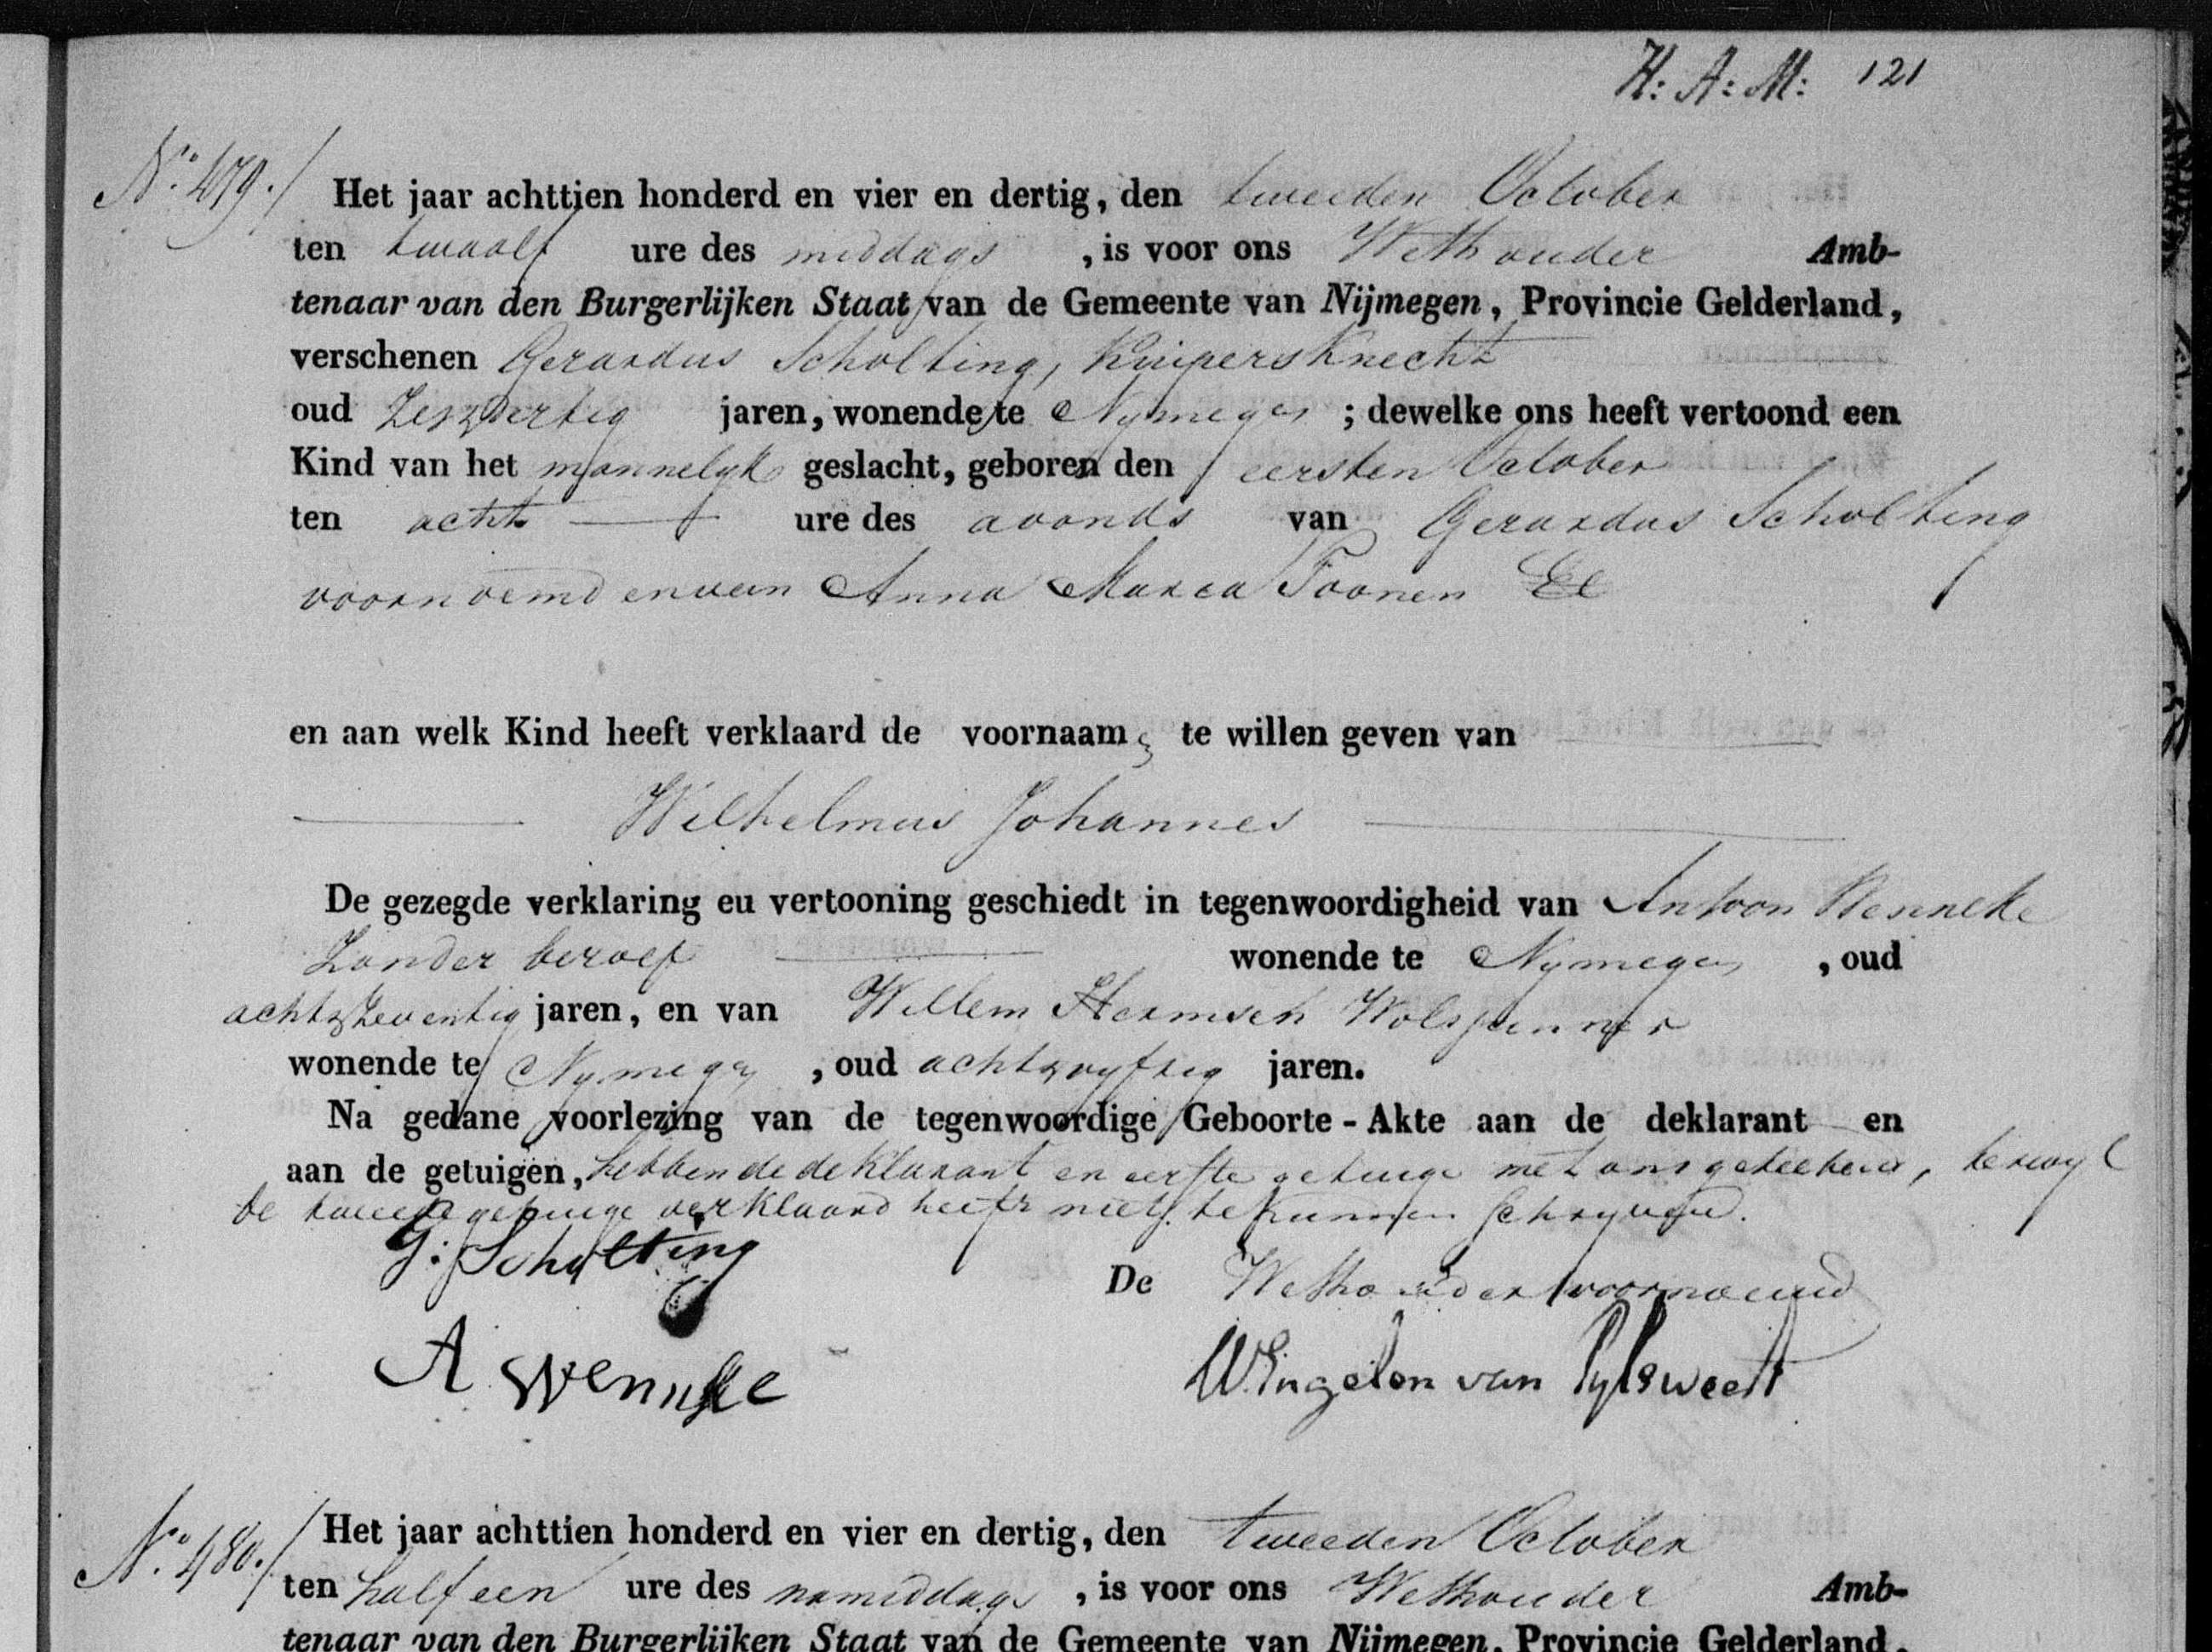 H: A: M: 121
No. 479.
Het jaar achttien honderd en vier en dertig, den tweeden October
ten twaalf ure des middags, is voor ons Wethouder Amb-
tenaar van den Burgerlijken Staat van de Gemeente van Nijmegen, Provincie Gelderland,
verschenen Gerardus Scholting, Kuipersknecht
oud Zes & dertig jaren, wonende te Nymegen; dewelke ons heeft vertoond een
Kind van het mannelyk geslacht, geboren den eersten October
ten acht ure des avonds van Gerardus Scholting
voornoemd en van Anna Maria Toonen
en aan welk Kind heeft verklaard de voornaam s te willen geven van
Wilhelmus Johannes
De gezegde verklaring eu vertooning geschiedt in tegenwoordigheid van Antoon Wenneke
Zonder beroep wonende te Nymegen, oud
acht & Zeventig jaren, en van Willem Hermsen Wolspinner
wonende te Nymegen, oud acht & vyftig jaren.
Na gedane voorlezing van de tegenwoordige Geboorte-Akte aan de deklarant en
aan de getuigen, hebben de deklarant en eerste getuige met ons geteekend, terwyl
de tweede getuige verklaard heeft niet te kunnen schryven.
G: Scholting
De Wethouder voornoemd
A Wenneke
W. Engelen van Pylsweert
No. 480.
Het jaar achttien honderd en vier en dertig, den tweeden October
ten half een ure des namiddags, is voor ons Wethouder Amb-
tenaar van den Burgerlijken Staat van de Gemeente van Nijmegen, Provincie Gelderland,